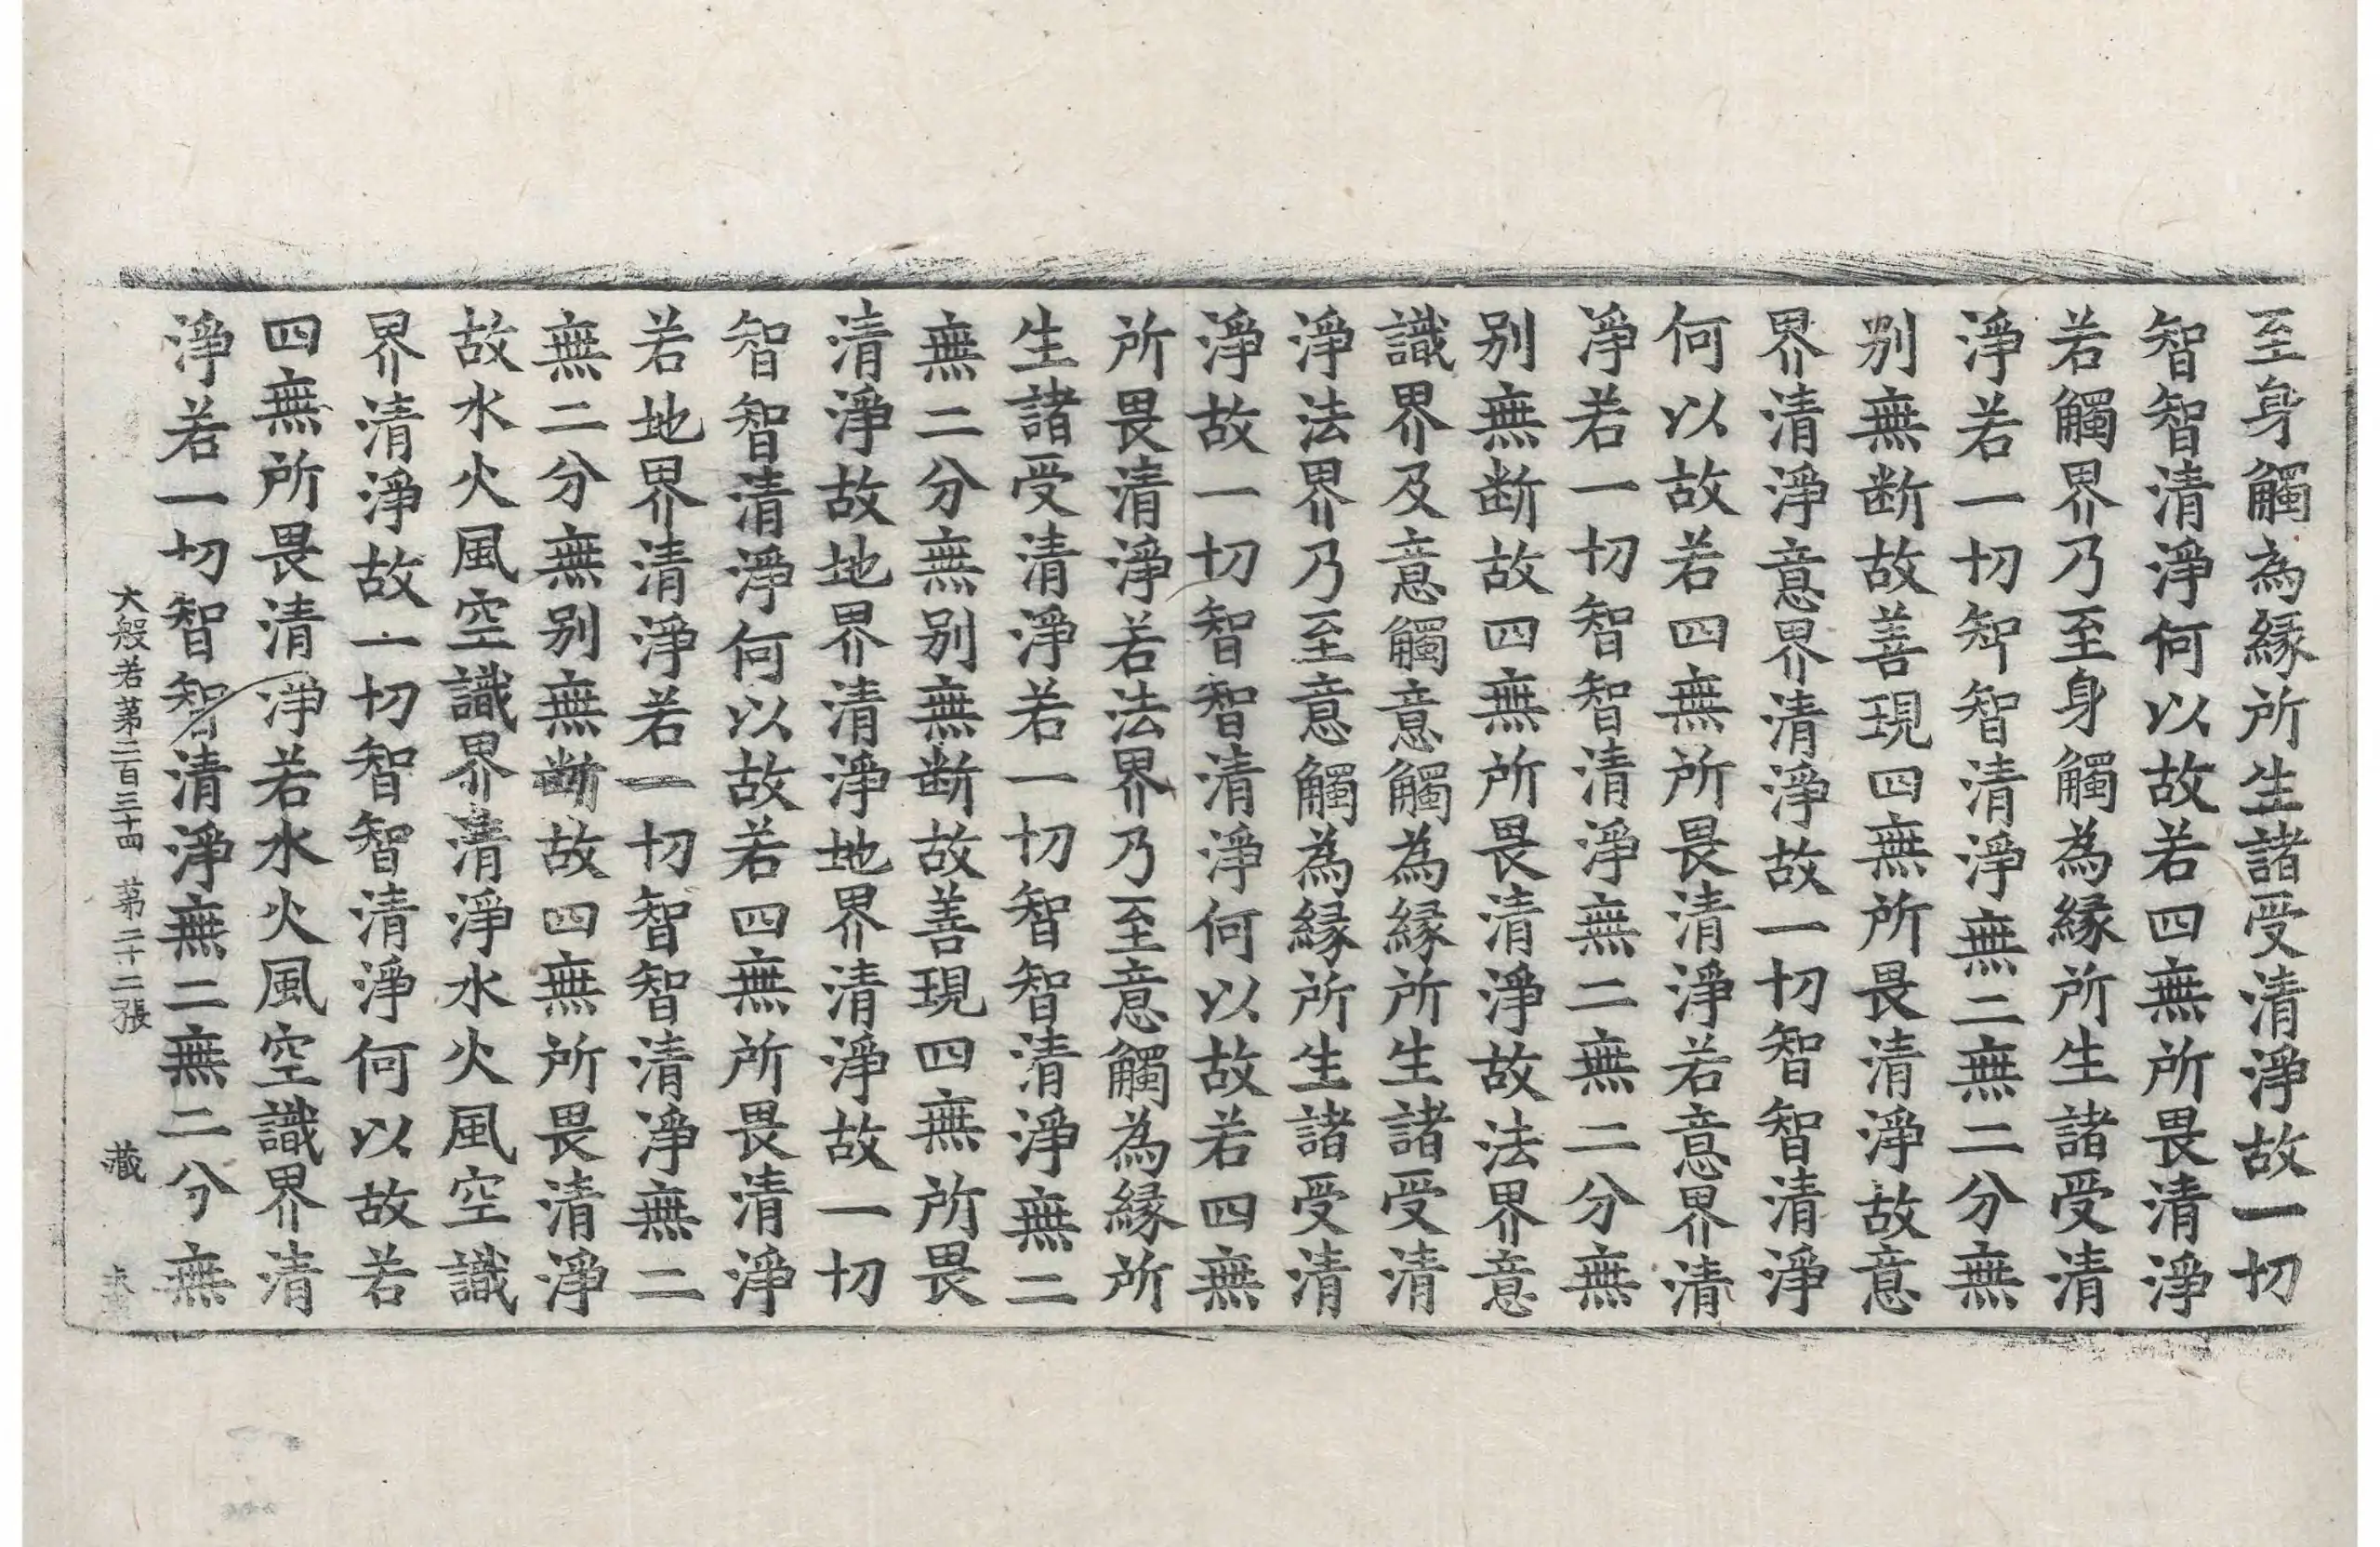 至身觸為緣所生諸受清淨故一切
智智清淨何以故若四無所畏清淨
若觸界乃至身觸為緣所生諸受清
淨若一切智智清淨無二無二分無
別無断故善現四無所畏清淨故意
界清淨意界清淨故一切智智清淨
何以故若四無所畏清淨若意界清
淨若一切智智清淨無二無二分無
別無断故四無所畏清淨故法界意
識界及意觸意觸為緣所生諸受清
淨法界乃至意觸為緣所生諸受清
淨故一切智智清淨何以故若四無
所畏清淨若法界乃至意觸為緣所
生諸受清淨若一切智智清淨無二
無二分無別無断故善現四無所畏
清淨故地界清淨地界清淨故一切
智智清淨何以故若四無所畏清淨
若地界清淨若一切智智清淨無二
無二分無別無断故四無所畏清淨
故水火風空識界清淨水火風空識
界清淨故一切智智清淨何以故若
四無所畏清淨若水火風空識界清
淨若一切智智清淨無二無二分無
大般若苐二百三十四 苐二十二張 藏